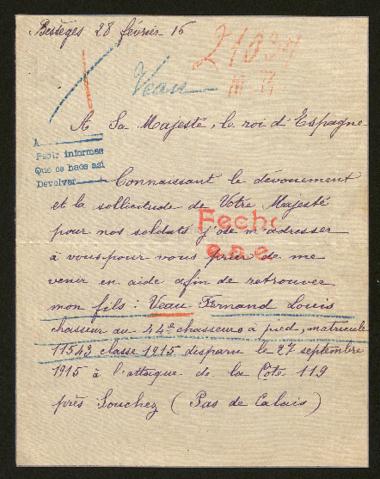 Bessèges 28 février 16
21034
Veau
A Sa Majesté, le roi d'Espagne
A
Pedir informes
Que se hace así
Devolver
Connaissant le dévouement
et la sollicitude de Votre Majesté
pour nos soldats j'ose m'adresser
à vous pour vous prier de me
venir en aide afin de retrouver
Fecho
mon fils : Veau Fernand Louis
chasseur au 44e chasseurs à pied, matricule
11543 classe 1915 disparu le 27 septembre
1915 à l'attaque de la Côte 119
près Souchez (Pas de Calais)